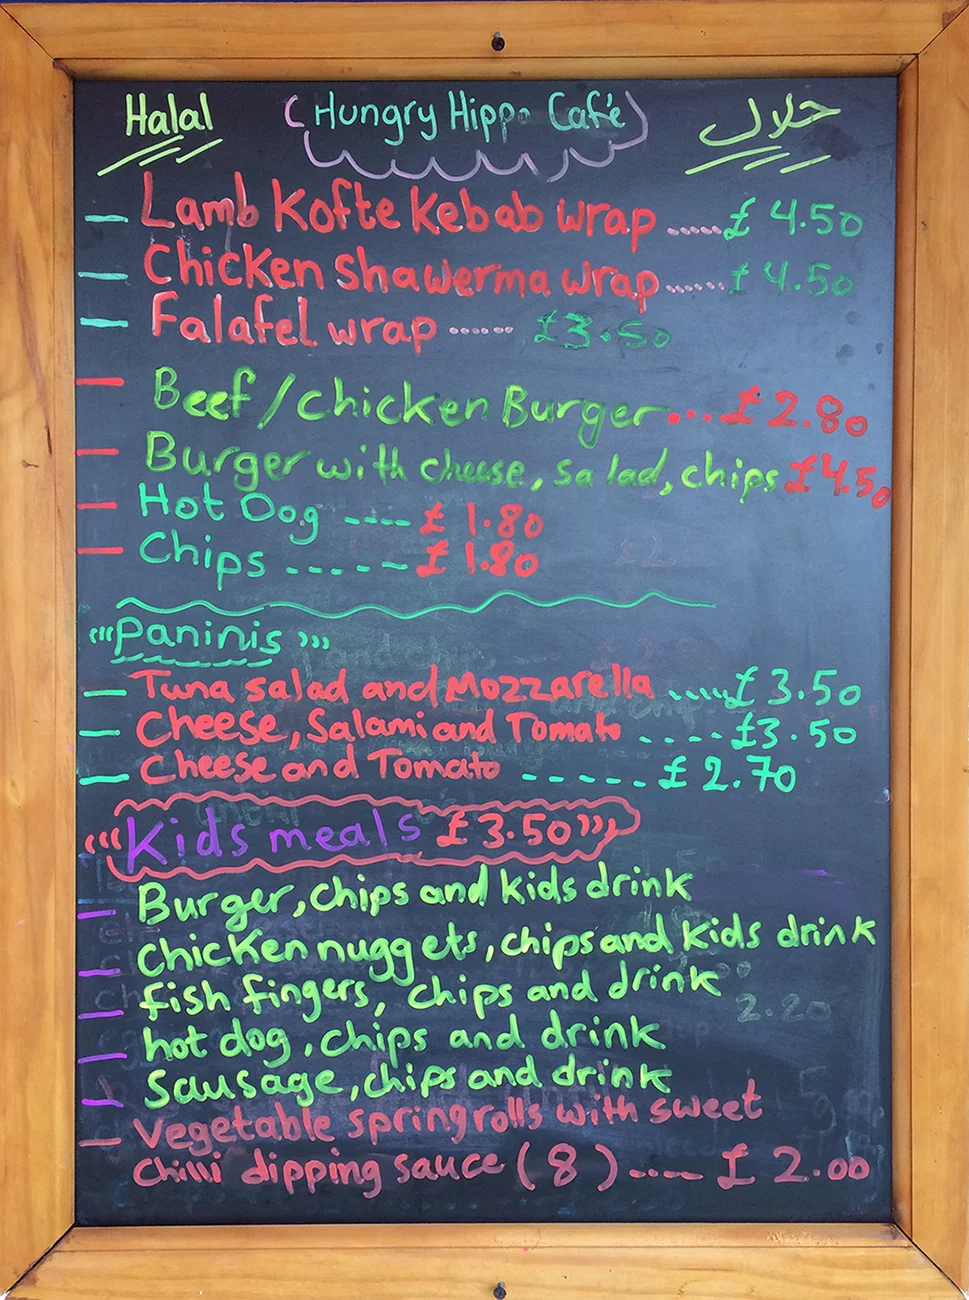 Halal (Hungry Hippo Café) حلال
- Lamb Kofte Kebab wrap ...... £ 4.50
- Chicken shawerma wrap ...... £ 4.50
- Falafel wrap ...... £3.50
- Beef/chicken Burger... £ 2.80
- Burger with cheese, salad, chips £4.50
- Hot Dog ---- £ 1.80
- Chips ------ £ 1.80
"Paninis"
- Tuna salad and Mozzarella ..... £ 3.50
- Cheese, Salami and Tomato ---- £3.50
- Cheese and Tomato ------ £ 2.70
"Kids meals £3.50"
- Burger, chips and kids drink
- Chicken nuggets, chips and kids drink
- fish fingers, chips and drink
2.20
- hot dog, chips and drink
- Sausage, chips and drink
- Vegetable spring rolls with sweet
Chilli dipping sauce (8) ---- £ 2.00